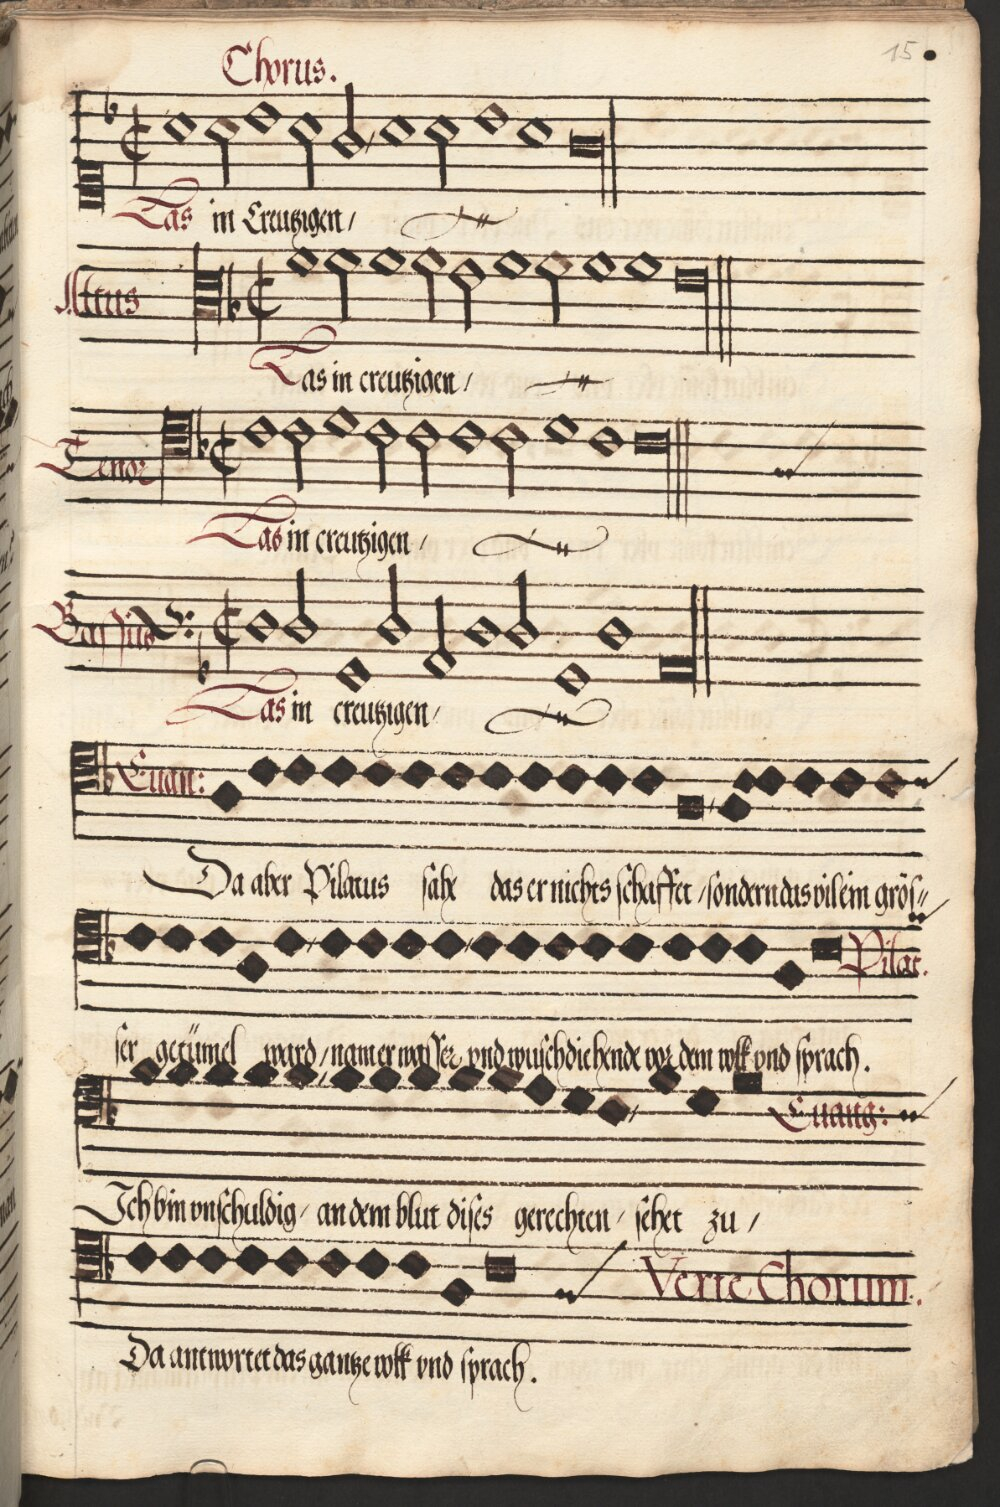 15
Chorus.
Las in Creutzigen /
Altus
Las in creutzigen /
Tenor
Las in creutzigen /
Bassus
Las in creutzigen /
Euan:
Da aber Pilatus sahe das er nichts schaffet / sondern das vil ein grös⸗
Pilat.
ser getümel ward / nam er wasser vnd wusch die hende vor dem volk vnd sprach.
Euang:
Ich bin vnschuldig / an dem blut dises gerechten / sehet zu /
Verte Chorum.
Da antwortet das gantze volk vnd sprach.